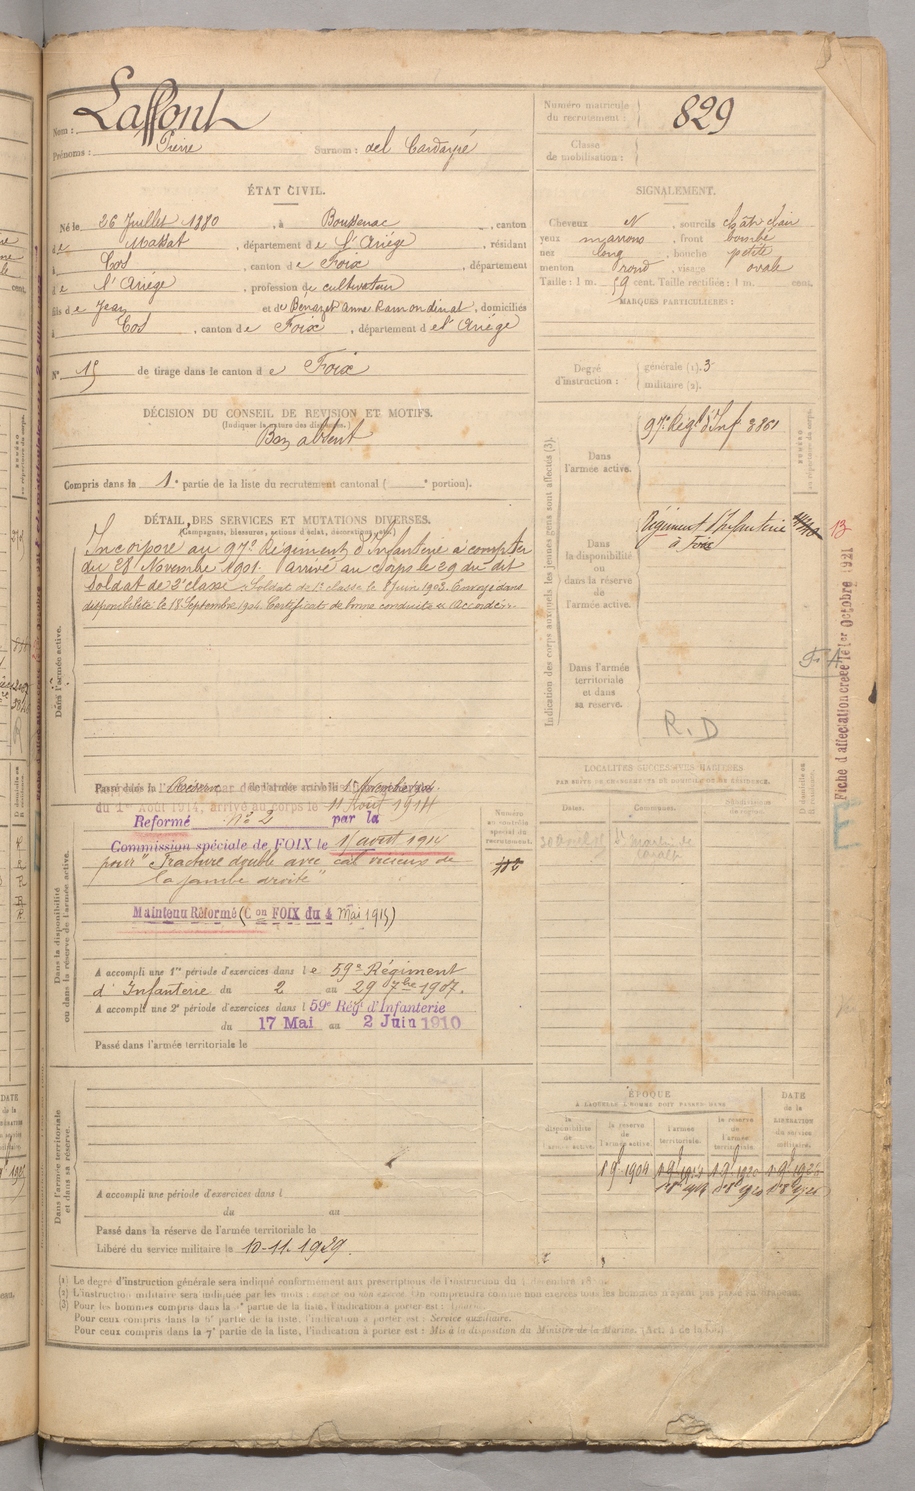 Nom : Laffont
Prénoms : Pierre Surnom : del Cardayré
Numéro matricule du recrutement : 829
Classe de mobilisation :
ÉTAT CIVIL.
Né le 26 Juillet 1880, à Boussenac, canton
de Massat, département de l'Ariége, résidant
à Cos, canton de Foix, département
de l'Ariége, profession de cultivateur
fils de Jean et de Benazet Anne Ramondinat, domiciliés
à Cos, canton de Foix, département de l'Ariége
N° 15 de tirage dans le canton de Foix
SIGNALEMENT.
Cheveux N, sourcils chât clair
yeux marrons, front bombé
nez long, bouche petite
menton rond, visage ovale
Taille : 1 m. 59 cent. Taille rectifiée : 1 m. cent.
MARQUES PARTICULIÈRES :
Degré d'instruction : générale (1). 3
militaire (2).
DÉCISION DU CONSEIL DE REVISION ET MOTIFS.
(Indiquer la nature des dispenses.)
Bon absent
Compris dans la 1e partie de la liste du recrutement cantonal ( e portion).
DÉTAIL DES SERVICES ET MUTATIONS DIVERSES.
(Campagnes, blessures, actions d'éclat, décorations, etc.)
Dans l'armée active.
Incorporé au 97e Régiment d'Infanterie à compter
du 28 Novembre 1901. Arrivé au Corps le 29 du dit
Soldat de 2e classe. Soldat de 1e classe le 8 Juin 1903. Envoyé dans
disponibilité le 18 Septembre 1904. Certificat de bonne conduite "Accordé".
Passé dans la Réserve de l'armée active le 1er Novembre 1904.
du 1er Août 1914, arrivé au corps le 11 Août 1914
Reformé n° 2 par la
Commission spéciale de FOIX le 1 août 1914
pour "Fracture double avec cal vicieux de
la jambe droite"
Maintenu Réformé (Con FOIX du 4 Mai 1915)
Dans la disponibilité ou dans la réserve de l'armée active.
A accompli une 1re période d'exercices dans le 59e Régiment
d'Infanterie du 2 au 29 7bre 1907.
A accompli une 2e période d'exercices dans l 59e Régt d'Infanterie
du 17 Mai au 2 Juin 1910
Passé dans l'armée territoriale le
Numéro au contrôle spécial du recrutement.
Dans l'armée territoriale et dans sa réserve.
A accompli une période d'exercices dans l
du au
Passé dans la réserve de l'armée territoriale le
Libéré du service militaire le 10-11. 1929.
Indication des corps auxquels les jeunes gens sont affectés (3).
Dans l'armée active.
97e Régt d'Inf 3861
Dans la disponibilité ou dans la réserve de l'armée active.
Régiment d'Infanterie
à Foix
13
Dans l'armée territoriale et dans sa réserve.
R. D
F A
Fiche d'affectation créée le 1er Octobre 1921
LOCALITÉS SUCCESSIVES HABITÉES
PAR SUITE DE CHANGEMENTS DE DOMICILE OU DE RÉSIDENCE.
Dates. Communes. Subdivisions de région. D domicile ou R résidence.
ÉPOQUE
À LAQUELLE L'HOMME DOIT PASSER DANS
la disponibilité de l'armée active.
la réserve de l'armée active.
l'armée territoriale.
la réserve de l'armée territoriale.
DATE de la LIBÉRATION du service militaire.
(1) Le degré d'instruction générale sera indiqué conformément aux prescriptions de l'instruction du
(2) L'instruction militaire sera indiquée par les mots : exercé ou non exercé. On comprendra comme non exercés tous les hommes n'ayant pas passé au drapeau.
(3) Pour les hommes compris dans la partie de la liste, l'indication à porter est :
Pour ceux compris dans la 6e partie de la liste, l'indication à porter est : Service auxiliaire.
Pour ceux compris dans la 7e partie de la liste, l'indication à porter est : Mis à la disposition du Ministre de la Marine.